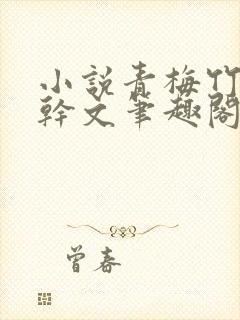 小說青梅竹
幹文筆趣閣
曾春